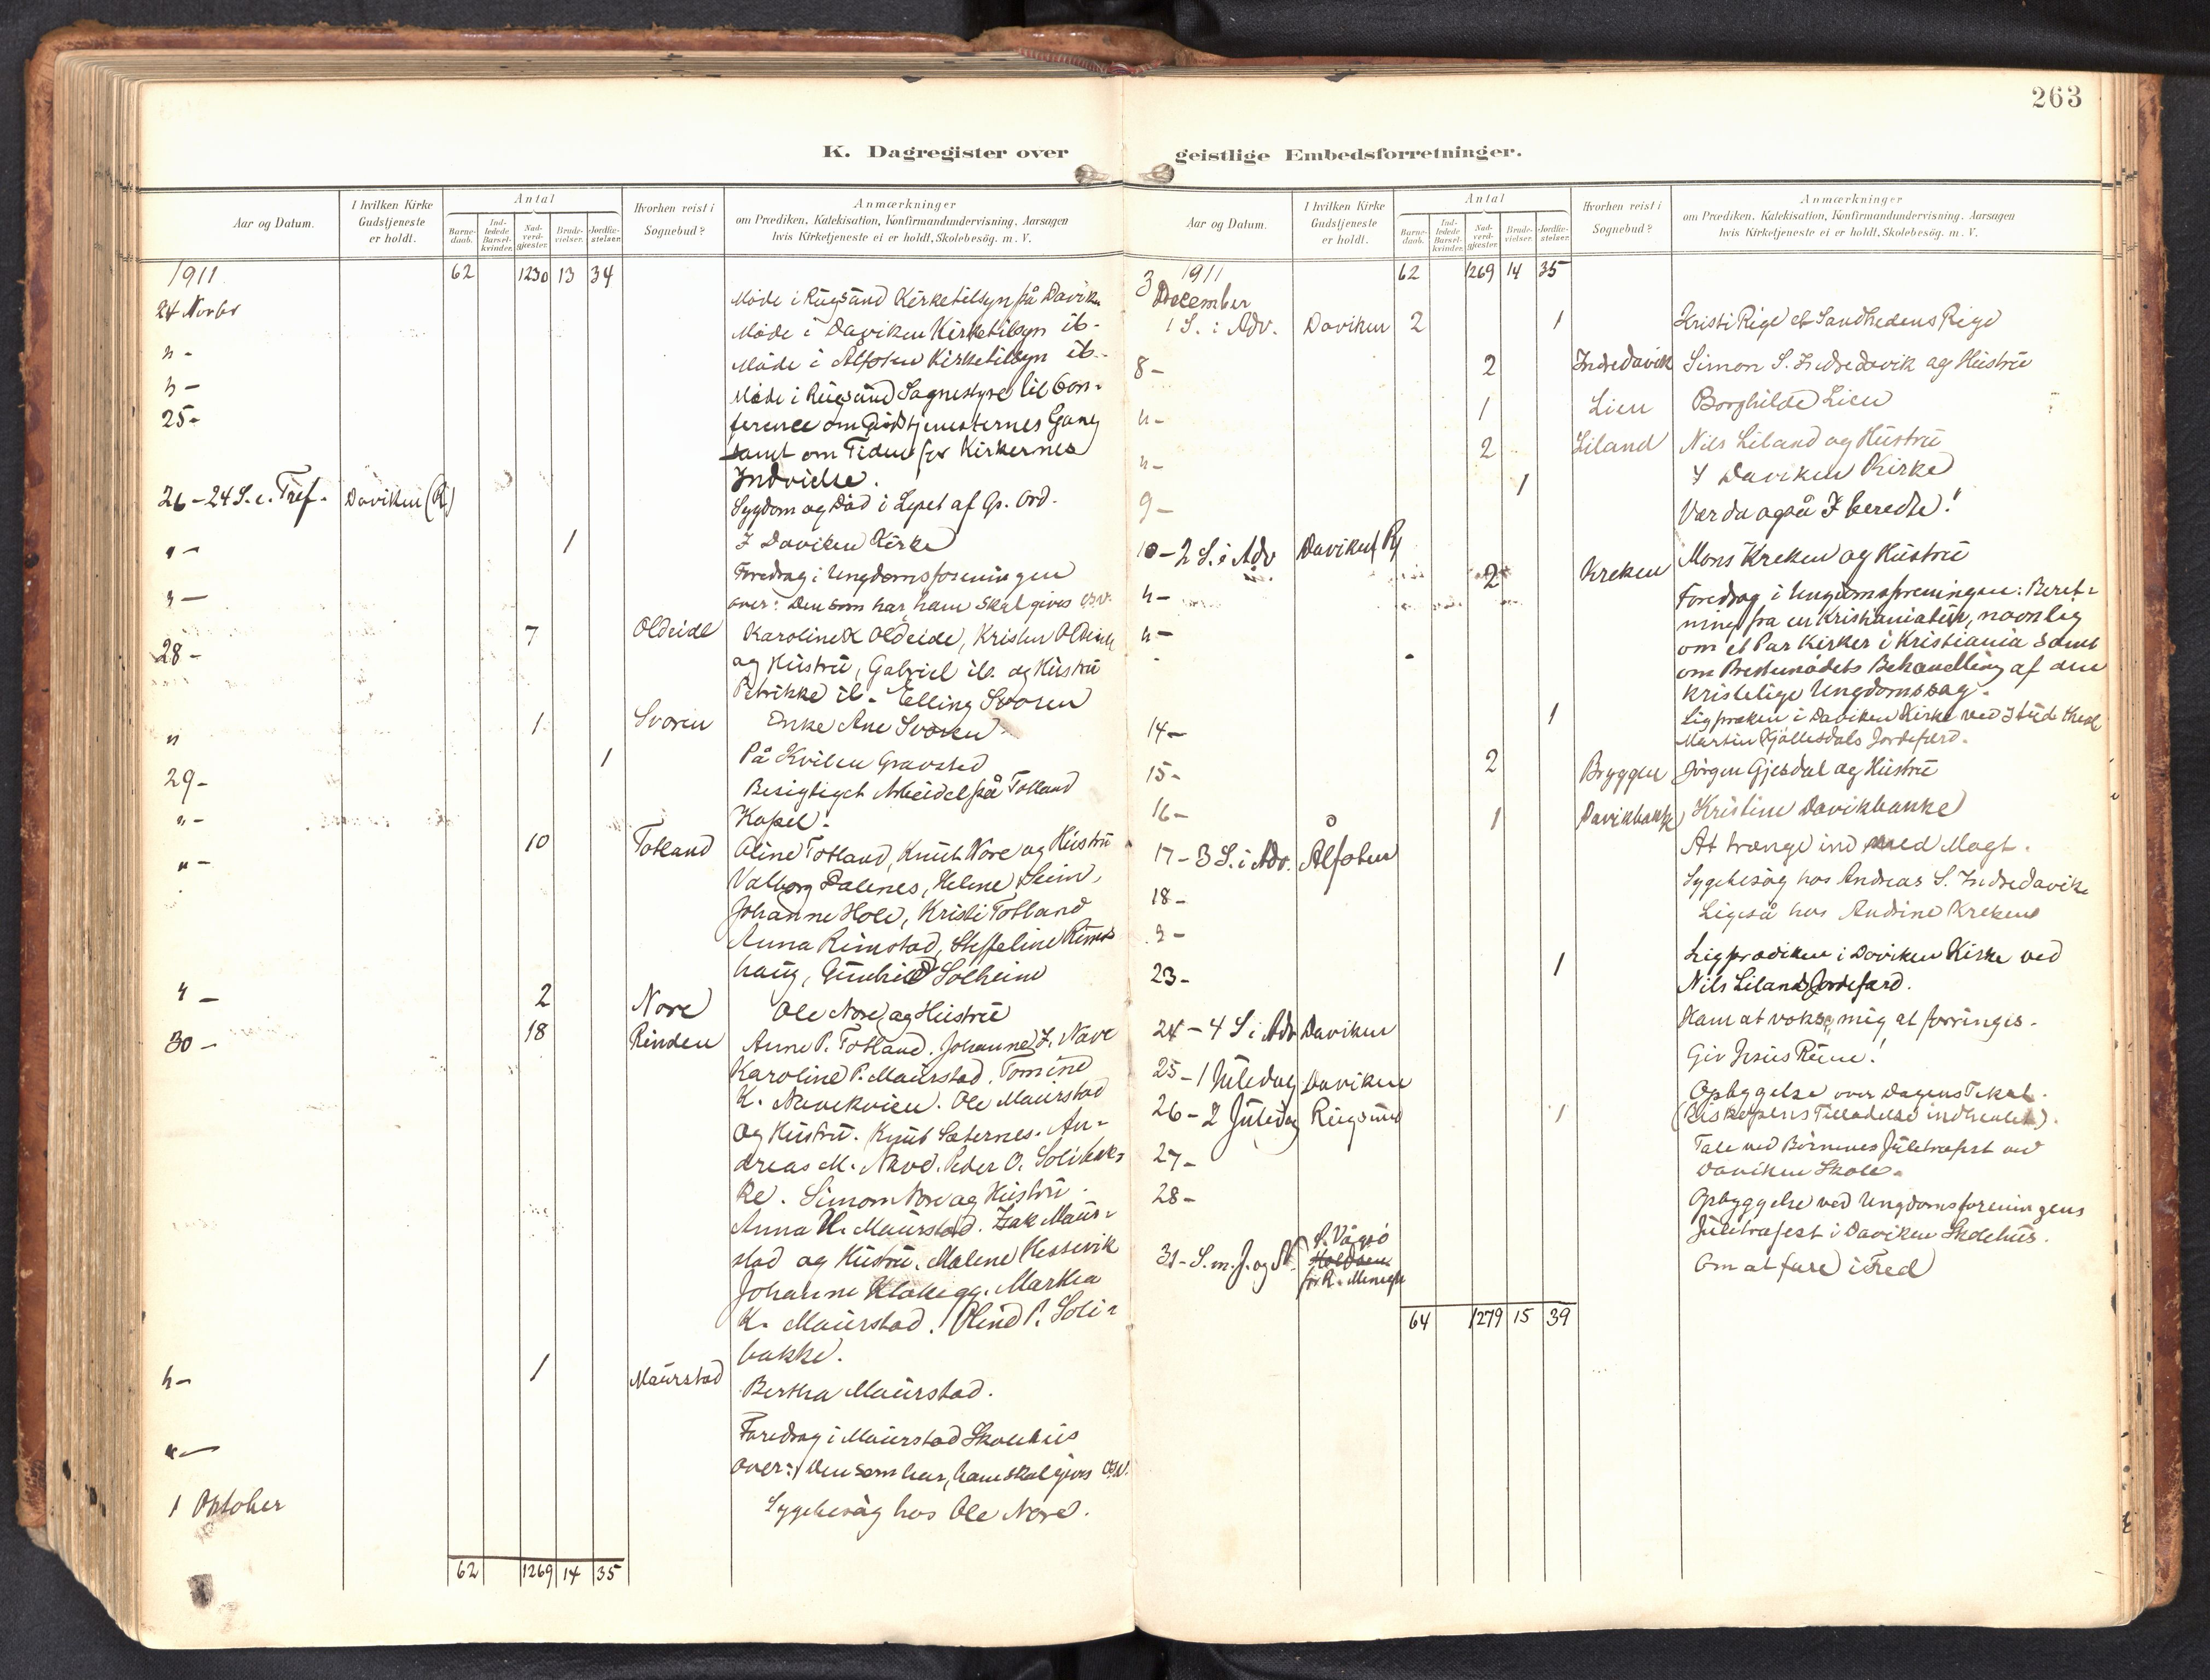 263
K. Dagregister over geistlige Embedsforretninger.
Aar og Datum.
I hvilken Kirke Gudstjeneste er holdt.
Antal
Barnedaab.
Indledede Barselkvinder.
Nadverdgjester.
Brudevielser.
Jordfæstelser.
Hvorhen reist i Sognebud?
Anmærkninger
om Prædiken, Katekisation, Konfirmandundervisning. Aarsagen
hvis Kirketjeneste ei er holdt, Skolebesög. m. V.
1911 62 1230 13 34
24 Novbr Møde i Rugsund Kirketilsyn på Daviken
" - Møde i Daviken Kirketilsyn ib-
" - Møde i Ålfoten Kirketilsyn ib-
25- Møde i Rugsund Sognestyre til Con-
ference om Gudstjenesternes Gang
samt om Tiden for Kirkernes
Indvielse.
26-24 S. e. Tref. Daviken (R) Sygdom og Død i Lyset af Gs. Ord.
" - 1 I Daviken Kirke
" - Foredrag i Ungdomsforeningen
over: Den som har ham skal gives
28- 7 Oldeide Karoline Oldeide, Kristen Oldeide
og Hustru, Gabriel ib. og Hustru
Petrikke ib- Elling Svoren
" 1 Svoren Enke Ane Svoren
29- 1 På Kvilen Gravsted
" - Besigtiget Arbeidet på Totland
Kapel.
" - 10 Totland Oline Totland, Knut Nore og Hustru
Valborg Dalenes, Helene Seim,
Johanne Hole, Kristi Totland
Anna Rimstad, Steffeline Rims-
haug, Solheim
" - 2 Nore Ole Nore og Hustru
30- 18 Rinden Anne P. Totland. Johanne J. Nave
Karoline P. Maurstad. Tomine
K. Navekvien. Ole Maurstad
og Hustru. Knut Sæternes. An-
dreas M. Nave. Peder O. Solibak-
ke. Simon Nore og Hustru.
Anna H. Maurstad. Isak Maur-
stad og Hustru. Malene Hessevik
Johanne Klakegg. Martha
K. Maurstad. Oline P. Soli-
bakke.
" - 1 Maurstad Bertha Maurstad.
" - Foredrag i Maurstad Skolehus
over: Den som har, ham skal gives
1 Oktober Sygebesøg hos Ole Nore.
62 1269 14 35
Aar og Datum.
I hvilken Kirke Gudstjeneste er holdt.
Antal
Barnedaab.
Indledede Barselkvinder.
Nadverdgjester.
Brudevielser.
Jordfæstelser.
Hvorhen reist i Sognebud?
Anmærkninger
om Prædiken, Katekisation, Konfirmandundervisning. Aarsagen
hvis Kirketjeneste ei er holdt, Skolebesög. m. V.
1911 62 1269 14 35
3 December
1 S. i Adv. Daviken 2 1 Kristi Rige et Sandhedens Rige
8- 2 Indredavik Simon S. Indredavik og Hustru
" - 1 Lien Borghilde Lien
" - 2 Liland Nils Liland og Hustru
9- 1 I Daviken Kirke
10-2 S. i Adv Daviken Vær da også I beredte!
" - 2 Kreken Mons Kreken og Hustru
" - Foredrag i Ungdomsforeningen: Beret-
ning fra en Kristianiatur, navnlig
om et Par Kirker i Kristiania samt
om Prestemødets Behandling af den
kristelige Ungdomssag.
14- 1 Ligpræken i Daviken Kirke ved Stud. theol
Martin Gjallesdals Jordefærd.
15- 2 Bryggen Jörgen Gjesdal og Hustru
16- 1 Davikbakke Kristine Davikbakke
17-3 S. i Adv. Ålfoten At trænge ind med Magt.
18- Sygebesøg hos Andreas S. Indredavik
" - Ligeså hos Andrine Kreken
23- 1 Ligprædiken i Daviken Kirke ved
Nils Lilands Jordefærd.
24-4 S i Adv Daviken Ham at vokse, mig at forringes.
25-1 Juledag Daviken Giv Jesus Rum!
26-2 Juledag Rugsund 1 Opbyggelse over Dagens Tekst.
(Biskopens Tilladelse indhentet).
27- Tale ved Börnenes Juletræfest ved
Daviken Skole.
28- Opbyggelse ved Ungdomsforeningens
Juletræfest i Daviken Skolehus.
31-S. m. J. og N. S. Vågsö
for R. Menigh Om at fare i Fred
64 1279 15 39